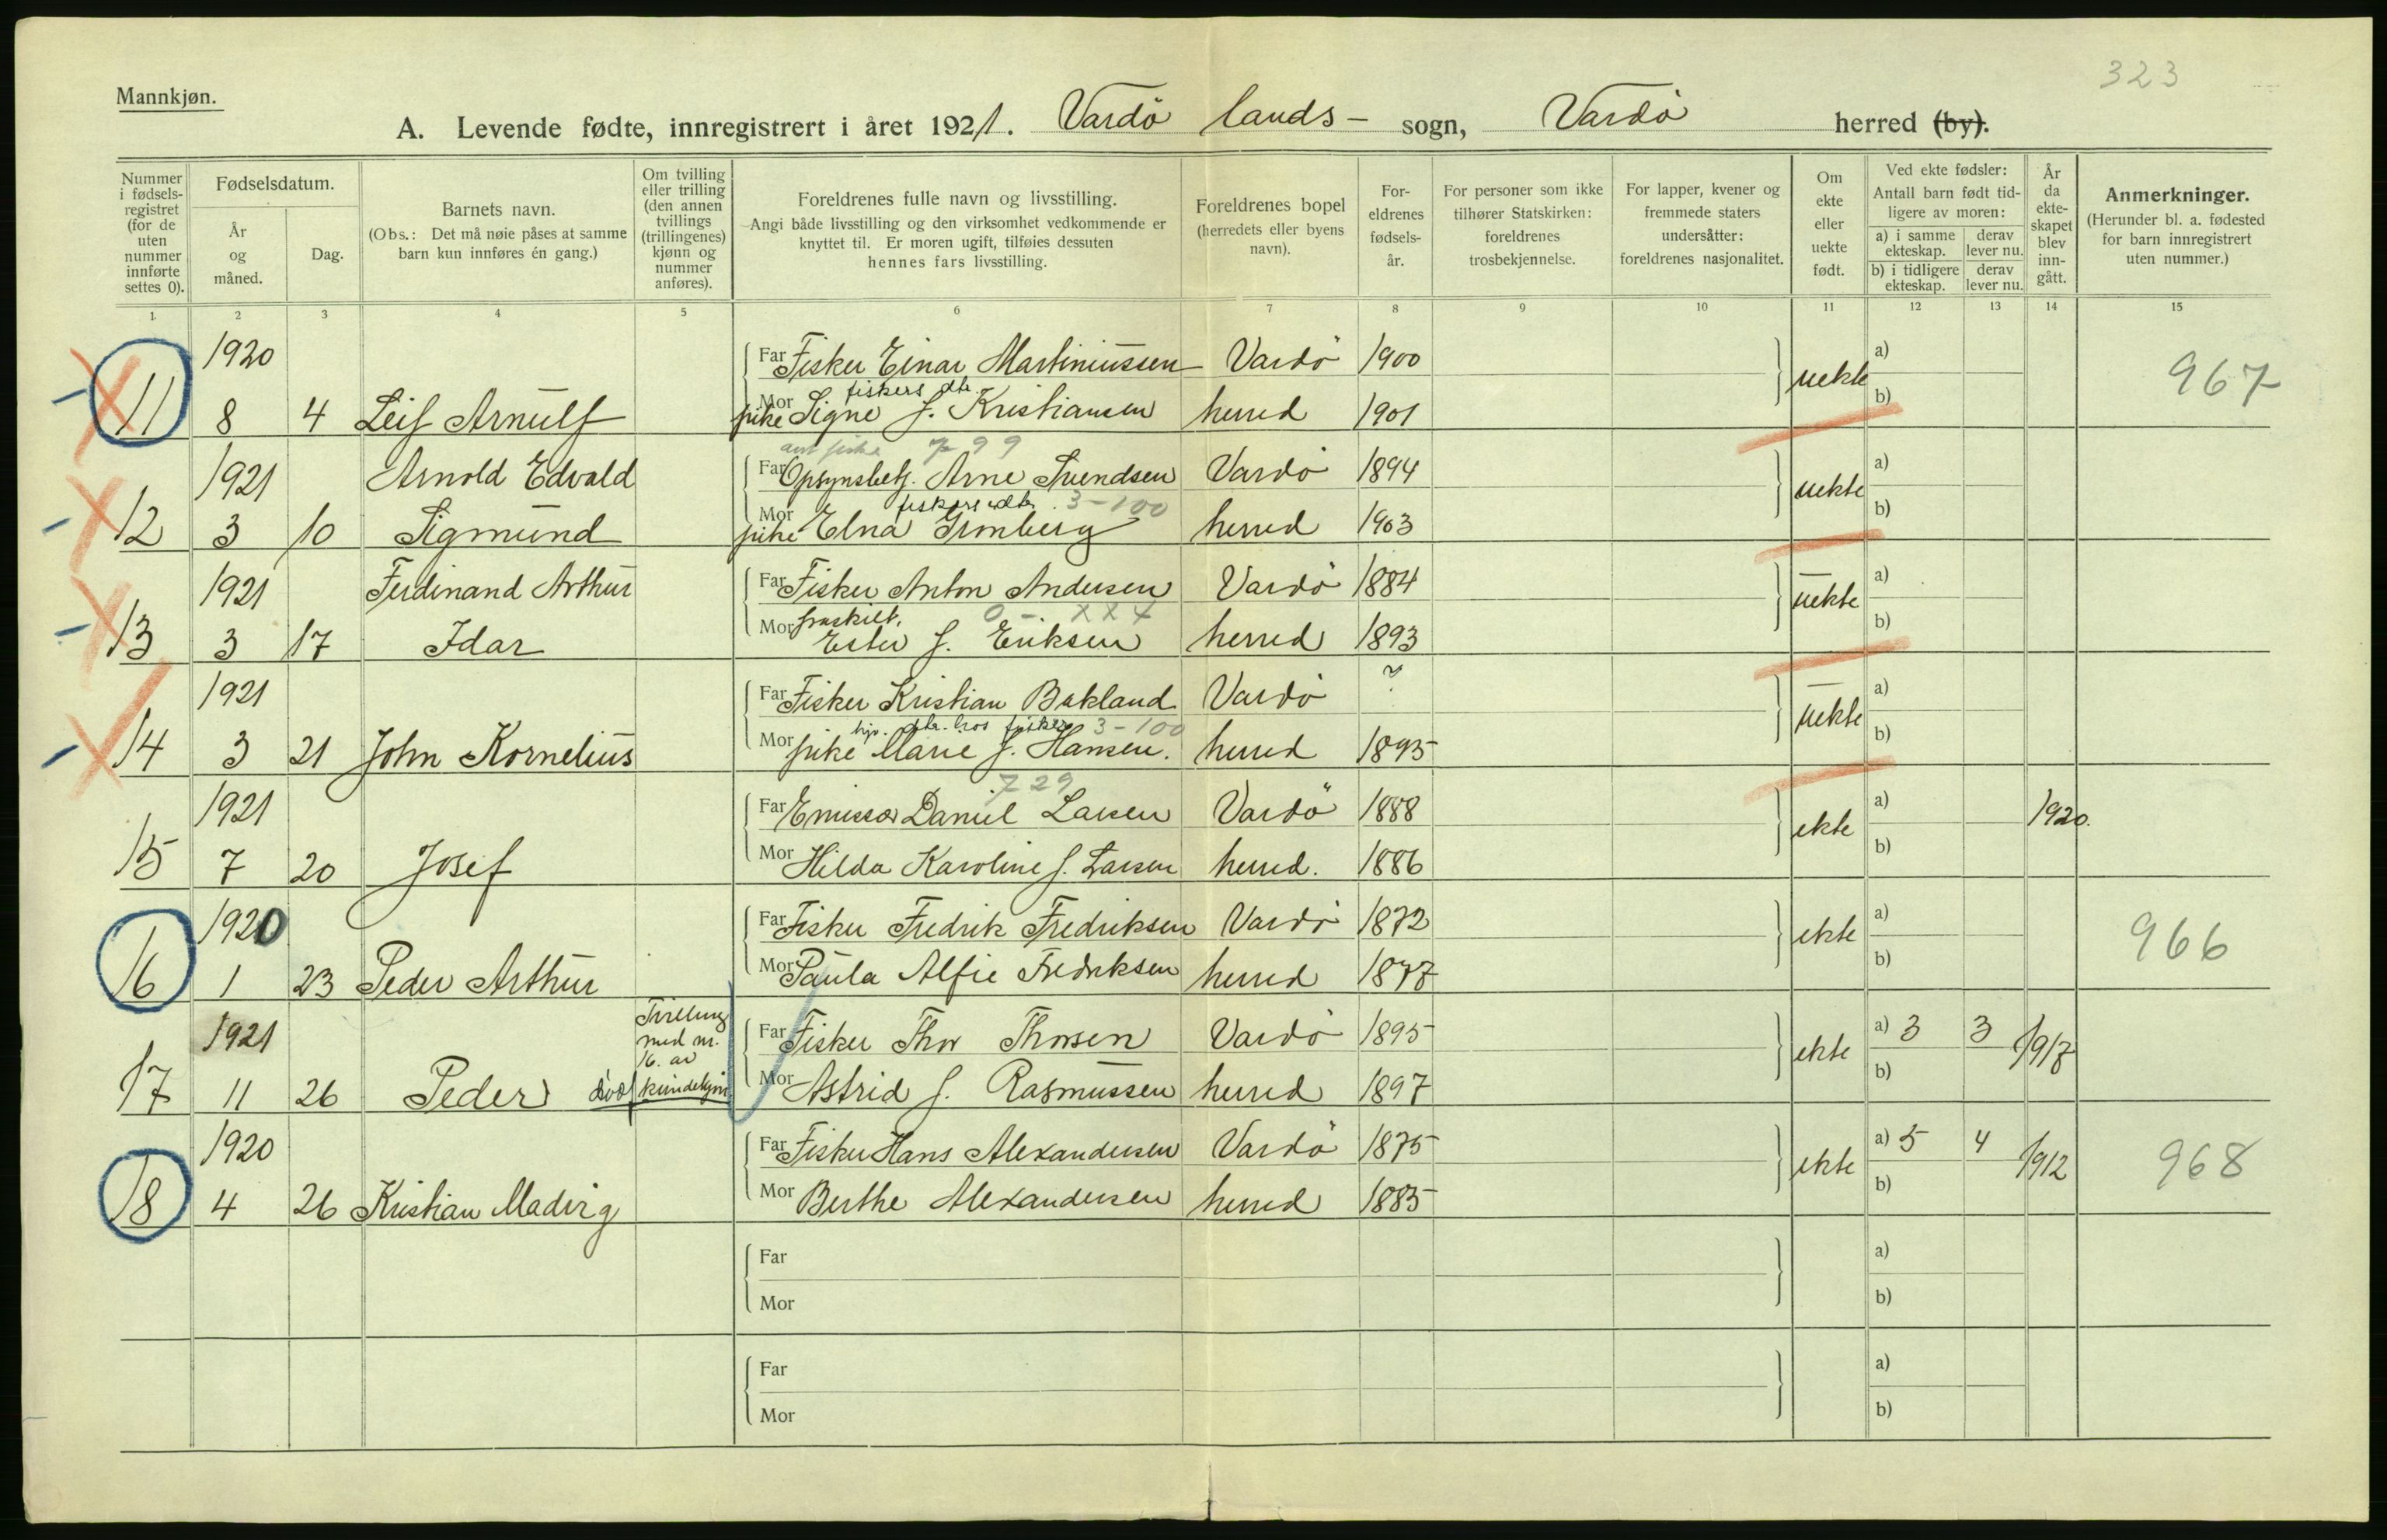 323
Mannkjøn.
A. Levende fødte, innregistrert i året 1921. Vardö lands- sogn, Vardö herred (by).
Nummer i fødsels-registret (for de uten nummer innførte settes 0).
Fødselsdatum.
År og måned.
Dag.
Barnets navn.
(Obs.: Det må nøie påses at samme barn kun innføres én gang.)
Om tvilling eller trilling (den annen tvillings (trillingenes) kjønn og nummer anføres).
Foreldrenes fulle navn og livsstilling.
Angi både livsstilling og den virksomhet vedkommende er knyttet til. Er moren ugift, tilføies dessuten hennes fars livsstilling.
Foreldrenes bopel (herredets eller byens navn).
For-eldrenes fødsels-år.
For personer som ikke tilhører Statskirken: foreldrenes trosbekjennelse.
For lapper, kvener og fremmede staters undersåtter: foreldrenes nasjonalitet.
Om ekte eller uekte født.
Ved ekte fødsler:
Antall barn født tid-ligere av moren:
a) i samme ekteskap. derav lever nu.
b) i tidligere ekteskap. derav lever nu.
År da ekte-skapet blev inn-gått.
Anmerkninger.
(Herunder bl. a. fødested for barn innregistrert uten nummer.)
1 2 3 4 5 6 7 8 9 10 11 12 13 14 15
1920 Far Fisker Einar Martiniussen Vardö 1900 uekte a) 967
fiskers dtr.
11 8 4 Leif Arnulf Mor pike Signe f. Kristiansen herred 1901 b)
799
1921 Arnold Edvald Far Opsynsbetj. Arne Svendsen Vardö 1894 uekte a)
fiskers dtr. 3-100
12 3 10 Sigmund Mor pike Elna Gronberg herred 1903 b)
1921 Ferdinand Arthur Far Fisker Anton Andersen Vardö 1884 uekte a)
fraskilt. 0 - XX4
13 3 17 Idar Mor Ester f. Eriksen herred 1893 b)
1921 Far Fisker Kristian Bakland Vardö ? uekte a)
hjp. dtr. hos fisker 3-100
14 3 21 John Kornelius Mor pike Marie f. Hansen. herred 1895 b)
729
1921 Far Emissær Daniel Larsen Vardö 1888 ekte a) 1920.
15 7 20 Josef Mor Hilda Karoline f. Larsen herred. 1886 b)
1920 Far Fisker Fredrik Fredriksen Vardö 1872 ekte a) 966
16 1 23 Peder Arthur Mor Paula Alfie Fredriksen herred 1877 b)
1921 Tvilling med nr. 16. av kvindekjøn Far Fisker Thor Thorsen Vardö 1895 ekte a) 3 3 1917
17 11 26 Peder Mor Astrid f. Rasmussen herred 1897 b)
1920 Far Fisker Hans Alexandersen Vardö 1875 ekte a) 5 4 1912 968
18 4 26 Kristian Madvig Mor Berthe Alexandersen herred 1885 b)
Far a)
Mor b)
Far a)
Mor b)